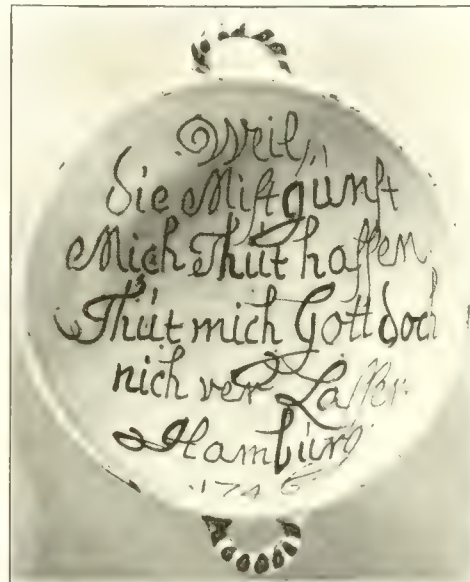 Weil,
die Mißgünst
Mich Thüt haßen,
Thüt mich Gott doch
nich ver Laßen
Hambürg
1746